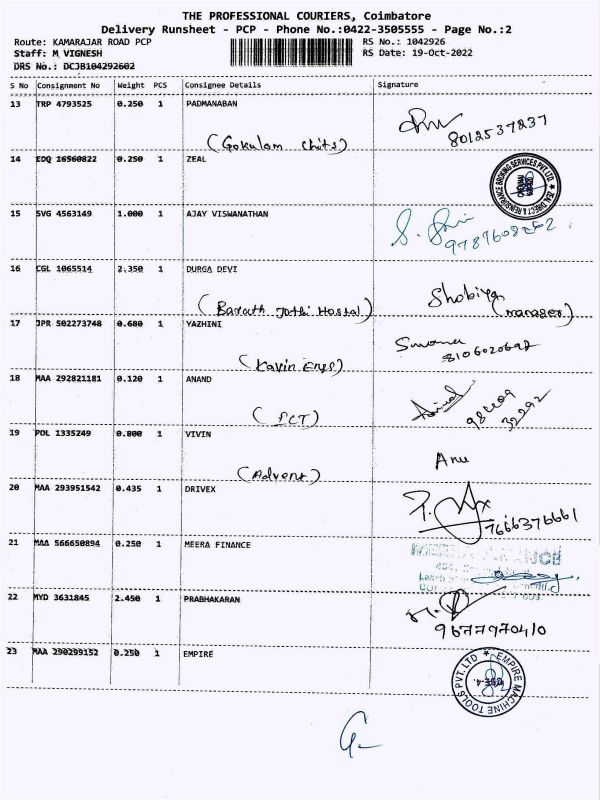 THE PROFESSIONAL COURIERS, Coimbatore
Delivery Runsheet - PCP - Phone No.:0422-3505555 - Page No.:2
Route: KAMARAJAR ROAD PCP RS No.: 1042926
Staff: M VIGNESH RS Date: 19-Oct-2022
DRS No.: DCJB104292602
S No Consignment No Weight PCS Consignee Details Signature
13 TRP 4793525 0.250 1 PADMANABAN
(Gokulam Chits) 8012537237
14 EDQ 16960822 0.250 1 ZEAL
ZEAL DIRECT & REINSURANCE BROKING SERVICES PVT. LTD.
15 SVG 4563149 1.000 1 AJAY VISWANATHAN
16 CGL 1065514 2.350 1 DURGA DEVI
(Barath Jothi Hostal) Shobiya (manager)
17 JPR 502273748 0.680 1 YAZHINI
8106020692
18 MAA 292821181 0.120 1 ANAND
19 POL 1335249 0.800 1 VIVIN
(Advent) Anu
20 MAA 293951542 0.435 1 DRIVEX
7666376661
21 MAA 566650894 0.250 1 MEERA FINANCE
MEERA FINANCE
22 MYD 3631845 2.450 1 PRABHAKARAN
9677970410
23 MAA 290299152 0.250 1 EMPIRE
EMPIRE MACHINE TOOLS PVT. LTD